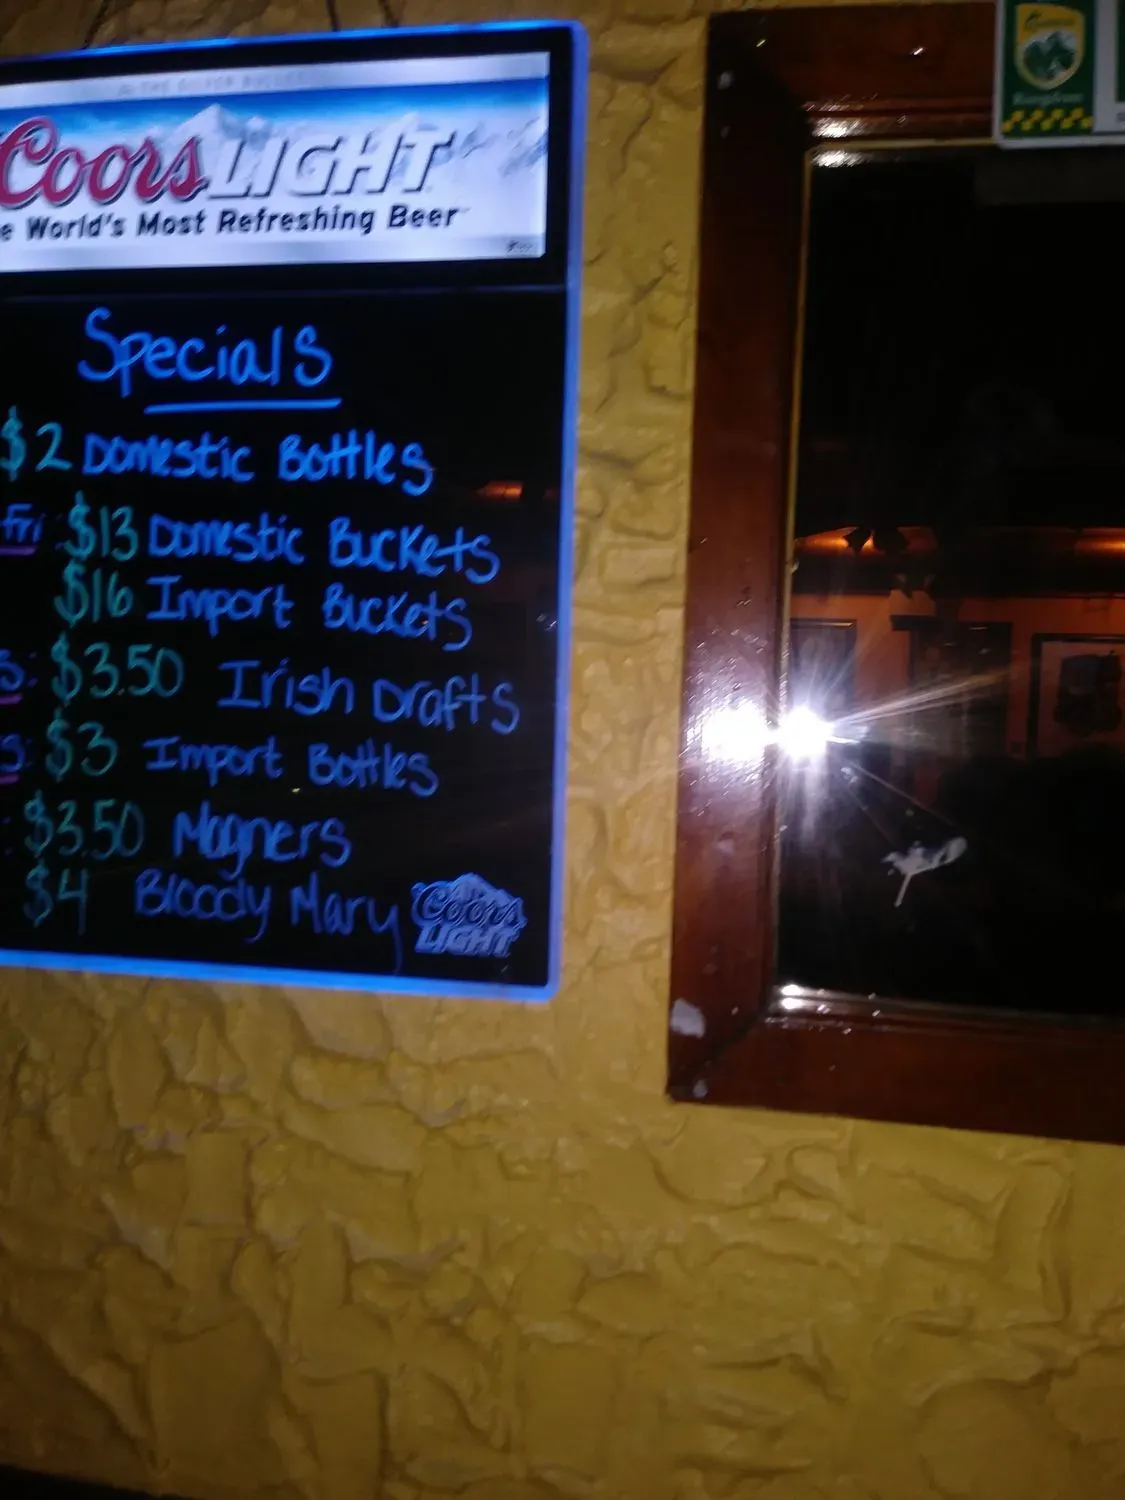 Coors LIGHT
e World's Most Refreshing Beer
Specials
$2 Domestic Bottles
Fri $13 Domestic Buckets
$16 Import Buckets
s: $3.50 Irish Drafts
s: $3 Import Bottles
: $3.50 Magners
$4 Bloody Mary
Coors
LIGHT